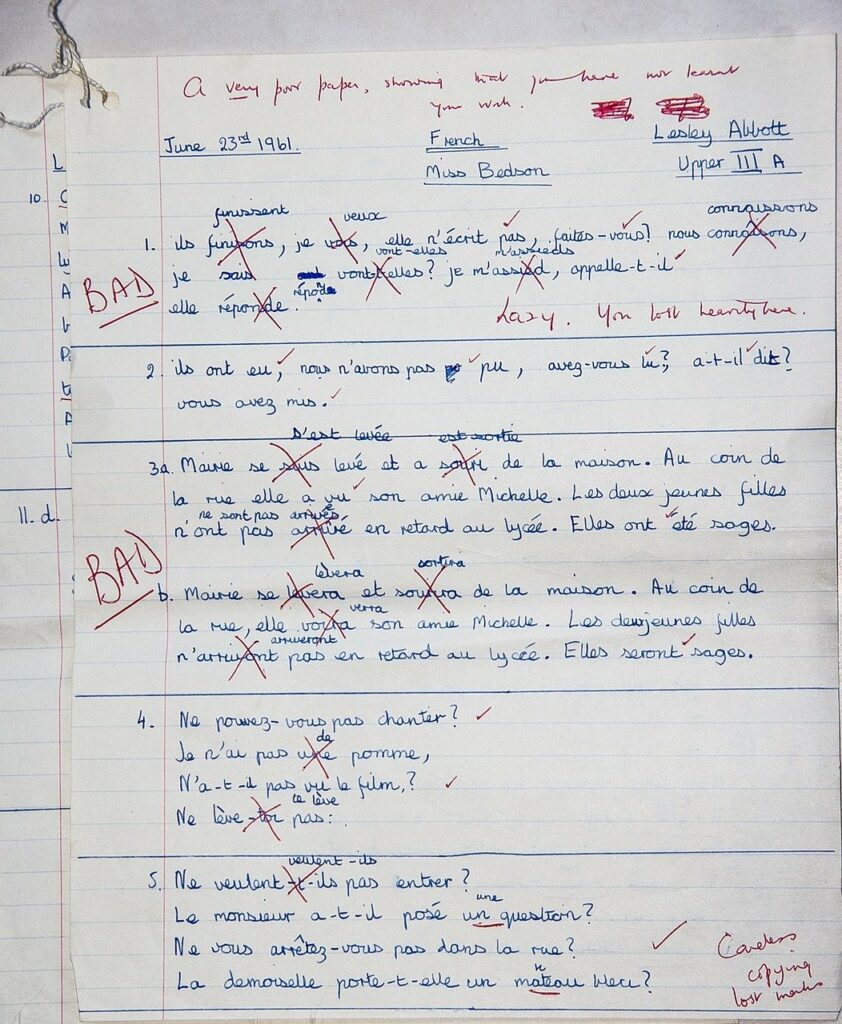 A very poor paper, showing that you have not learnt
your work.
June 23rd 1961. French Lesley Abbott
Miss Bedson Upper III A
L
10. C
M
W
A
V
P
t
A
V
11. d.
finissent veux connaissons
1. ils finisons, je vois, elle n'écrit pas, faites-vous? nous connâisons,
vont-elles m'assieds
je sais vont-t-elles? je m'assied, appelle-t-il
BAD
répond
elle réponde.
Lazy. You lost heavily here.
2. ils ont eu, nous n'avons pas pu, avez-vous lu?, a-t-il dit?
vous avez mis.
s'est levée est sortie
3a. Mairie se suis levé et a sorti de la maison. Au coin de
la rue elle a vu son amie Michelle. Les deux jeunes filles
ne sont pas arrivés
n'ont pas arrivé en retard au lycée. Elles ont été sages.
BAD
lèvera sortira
b. Mairie se levera et sortira de la maison. Au coin de
verra
la rue, elle voira son amie Michelle. Les deuxjeunes filles
arriveront
n'arrivont pas en retard au lycée. Elles seront sages.
4. Ne pouvez-vous pas chanter?
de
Je n'ai pas une pomme,
N'a-t-il pas vu le film,?
te lève
Ne lève-toi pas:
veulent-ils
5. Ne veulent-t-ils pas entrer?
une
Le monsieur a-t-il posé un question?
Ne vous arrêtez-vous pas dans la rue?
n
La demoiselle porte-t-elle un mateau bleu?
Careless
copying
lost marks